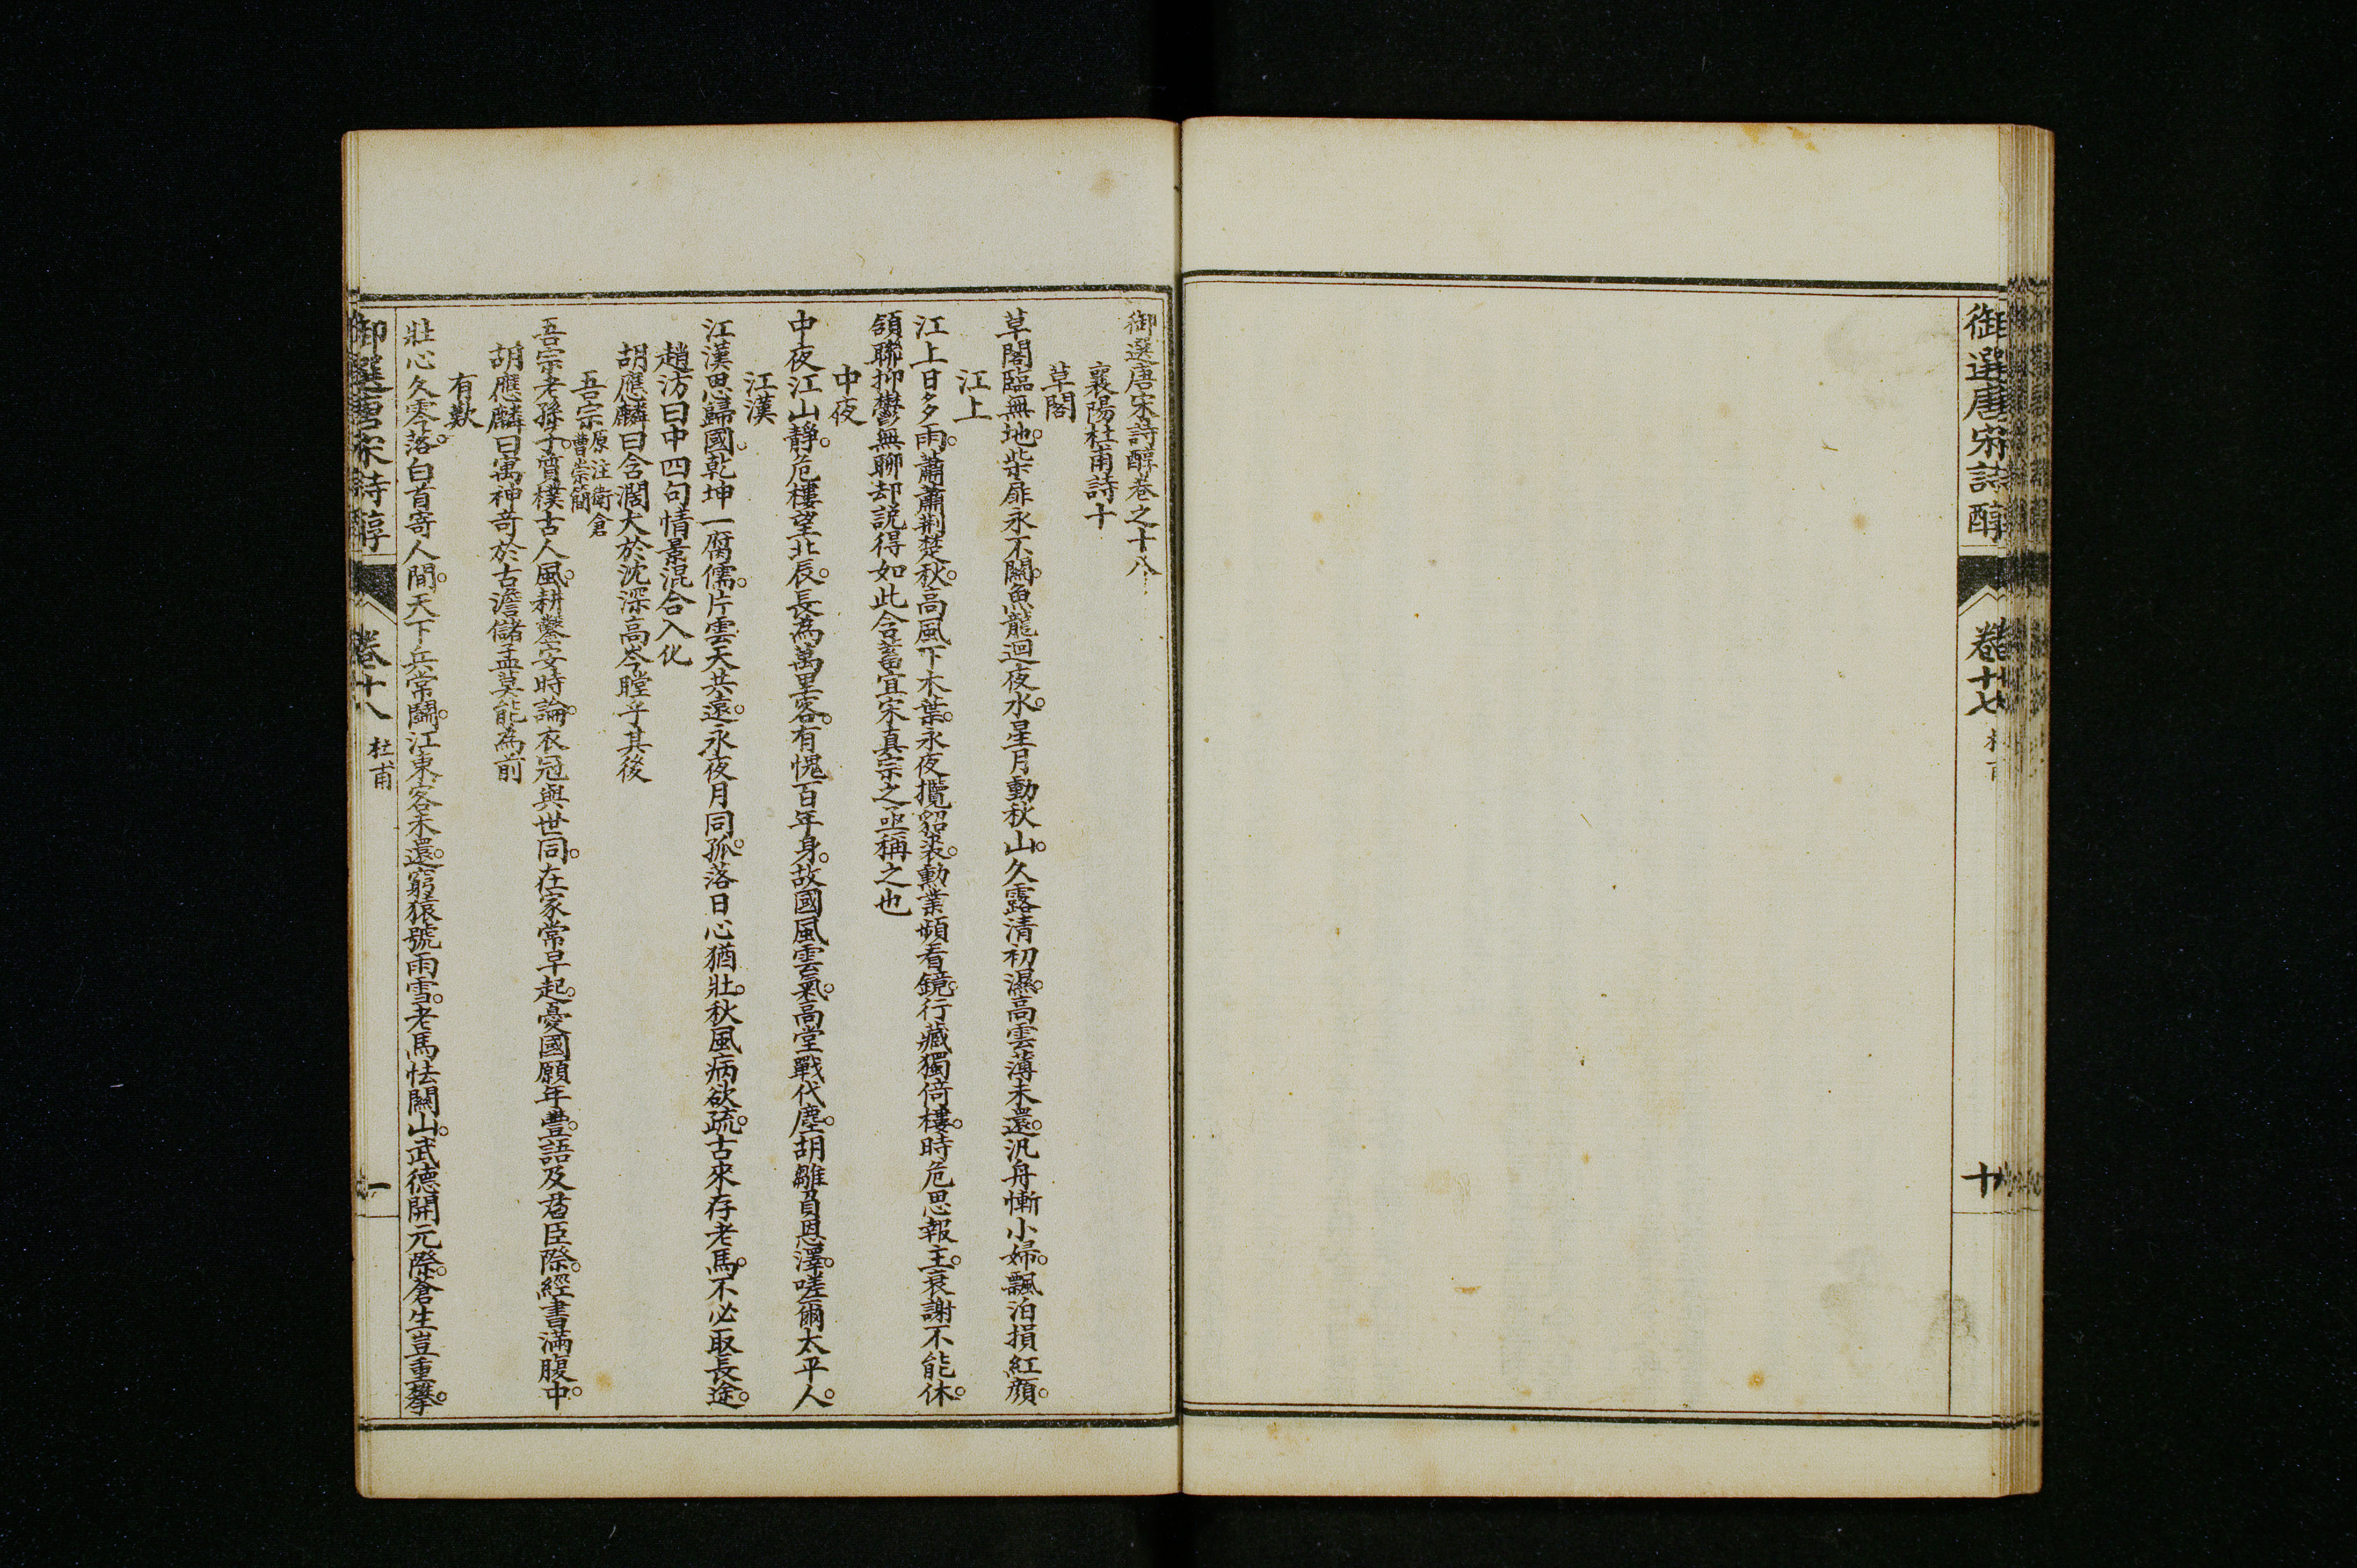 御選唐宋詩醇
卷十七
十
御選唐宋詩醇卷之十八
襄陽杜甫詩十
草閣
草閣臨無地。柴扉永不關。魚龍迴夜水。星月動秋山。久露清初濕。高雲薄未還。汎舟慚小婦。飄泊損紅顏。
江上
江上日多雨。蕭蕭荆楚秋。高風下木葉。永夜攬貂裘。勳業頻看鏡。行藏獨倚樓。時危思報主。衰謝不能休。
頷聯抑鬱無聊却說得如此含蓄宜宋真宗之亟稱之也
中夜
中夜江山靜。危樓望北辰。長為萬里客。有愧百年身。故國風雲氣。高堂戰代塵。胡雛負恩澤。嗟爾太平人。
江漢
江漢思歸國。乾坤一腐儒。片雲天共遠。永夜月同孤。落日心猶壯。秋風病欲疏。古來存老馬。不必取長途。
趙汸曰中四句情景混合入化
胡應麟曰含濶大於沈深高岑瞠乎其後
吾宗原注衛倉曹崇簡
吾宗老孫子。質樸古人風。耕鑿安時論。衣冠與世同。在家常早起。憂國願年豐。語及君臣際。經書滿腹中。
胡應麟曰寓神奇於古澹儲孟莫能為前
有歎
壯心久零落。白首寄人間。天下兵常鬬。江東客未還。窮猿號雨雪。老馬怯關山。武德開元際。蒼生豈重攀。
御選唐宋詩醇
卷十八
杜甫
一